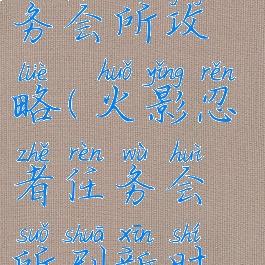 务会所攻
lüè huǒ yǐng rěn
略(火影忍
zhě rèn wù huì
者任务会
suǒ shuā xīn shí
所刷新时